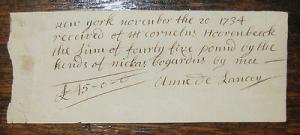 new york november the 20 1734
received of Mr Cornelus Hoorenbeeck
the sum of fourty five pound by the
hends of nickas bogardus by mee —
£ 45-0-0 Anne de Lancey